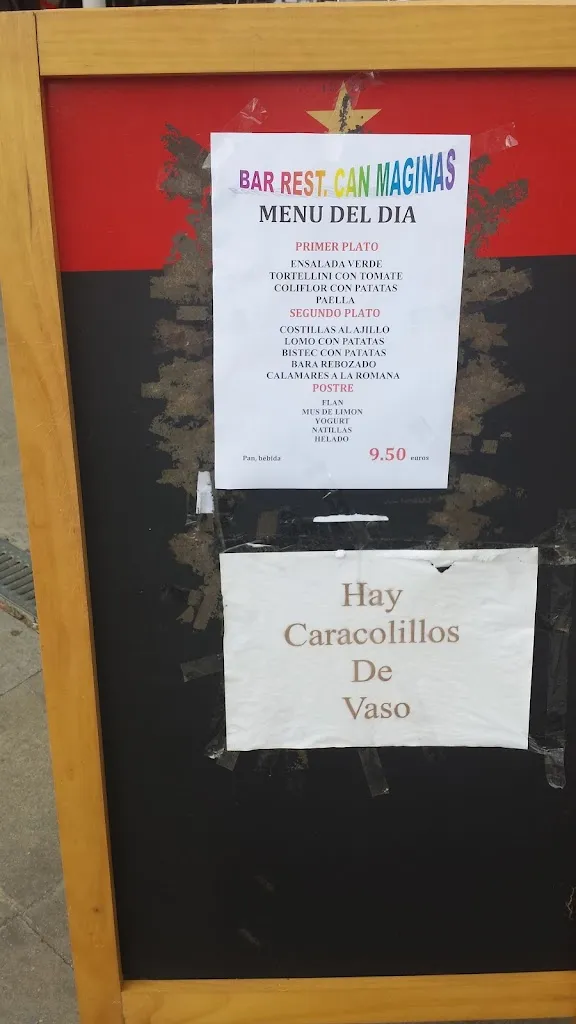 BAR REST, CAN MAGINAS
MENU DEL DIA
PRIMER PLATO
ENSALADA VERDE
TORTELLINI CON TOMATE
COLIFLOR CON PATATAS
PAELLA
SEGUNDO PLATO
COSTILLAS AL AJILLO
LOMO CON PATATAS
BISTEC CON PATATAS
BARA REBOZADO
CALAMARES A LA ROMANA
POSTRE
FLAN
MUS DE LIMON
YOGURT
NATILLAS
HELADO
Pan, bebida 9.50 euros
Hay
Caracolillos
De
Vaso